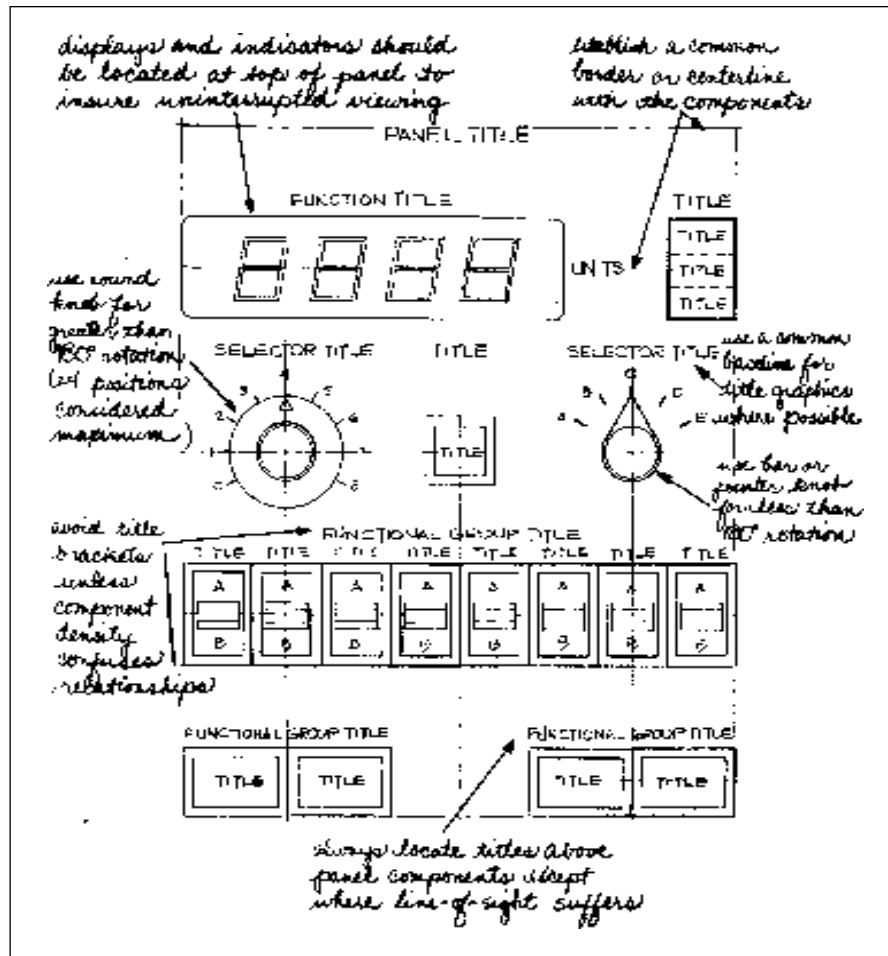 displays and indicators should
be located at top of panel to
insure uninterrupted viewing
establish a common
border or centerline
with other components
PANEL TITLE
FUNCTION TITLE
TITLE
TITLE
TITLE
TITLE
UNITS
use round
knob for
greater than
180° rotation
(24 positions
considered
maximum)
SELECTOR TITLE
TITLE
SELECTOR TITLE
use a common
baseline for
title graphics
where possible
2 3 4 5 6
A B C D E
TITLE
use bar or
pointer knob
for less than
180° rotation
avoid title
brackets
unless
component
density
confuses
relationships
FUNCTIONAL GROUP TITLE
TITLE TITLE TITLE TITLE TITLE TITLE TITLE TITLE
A A A A A A A A
B B B B B B B B
FUNCTIONAL GROUP TITLE
FUNCTIONAL GROUP TITLE
TITLE TITLE
TITLE TITLE
always locate titles above
panel components except
where line-of-sight suffers